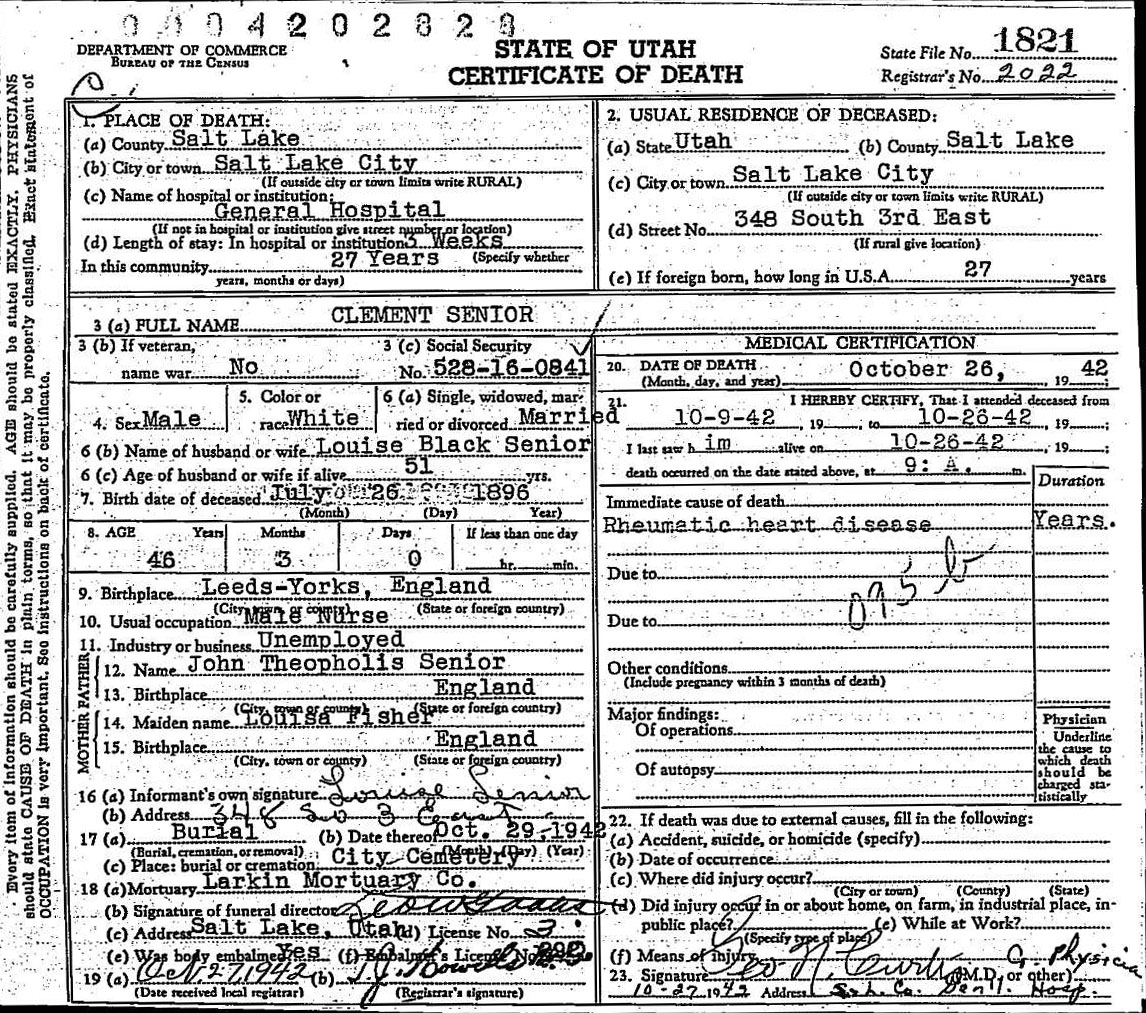 0004202828
DEPARTMENT OF COMMERCE
BUREAU OF THE CENSUS
STATE OF UTAH
CERTIFICATE OF DEATH
State File No. 1821
Registrar's No. 2022
Every item of information should be carefully supplied. AGE should be stated EXACTLY. PHYSICIANS
should state CAUSE OF DEATH in plain terms, so that it may be properly classified. Exact statement of
OCCUPATION is very important. See instructions on back of certificate.
1. PLACE OF DEATH:
(a) County Salt Lake
(b) City or town Salt Lake City
(If outside city or town limits write RURAL)
(c) Name of hospital or institution:
General Hospital
(If not in hospital or institution give street number or location)
(d) Length of stay: In hospital or institution 3 Weeks
(Specify whether
In this community 27 Years
years, months or days)
2. USUAL RESIDENCE OF DECEASED:
(a) State Utah (b) County Salt Lake
(c) City or town Salt Lake City
(If outside city or town limits write RURAL)
(d) Street No. 348 South 3rd East
(If rural give location)
(e) If foreign born, how long in U.S.A. 27 years
3 (a) FULL NAME CLEMENT SENIOR
3 (b) If veteran,
name war No
3 (c) Social Security
No. 528-16-0841
4. Sex Male
5. Color or
race White
6 (a) Single, widowed, mar-
ried or divorced Married
6 (b) Name of husband or wife Louise Black Senior
6 (c) Age of husband or wife if alive 51 yrs.
7. Birth date of deceased July 26 1896
(Month) (Day) Year)
8. AGE Years Months Days If less than one day
46 3 0 hr. min.
9. Birthplace Leeds-Yorks, England
(City, town or county) (State or foreign country)
10. Usual occupation Male Nurse
11. Industry or business Unemployed
FATHER
12. Name John Theopholis Senior
13. Birthplace England
(City, town or county) (State or foreign country)
MOTHER
14. Maiden name Louisa Fisher
15. Birthplace England
(City, town or county) (State or foreign country)
16 (a) Informant's own signature Louise Senior
(b) Address 348 So 3 East
17 (a) Burial (b) Date thereof Oct. 29, 1942
(Burial, cremation, or removal) (Month) (Day) (Year)
(c) Place: burial or cremation City Cemetery
18 (a) Mortuary Larkin Mortuary Co.
(b) Signature of funeral director
(c) Address Salt Lake, Utah (d) License No. 3
(e) Was body embalmed? Yes (f) Embalmer's License No.
19 (a) Oct 27, 1942 (b)
(Date received local registrar) (Registrar's signature)
MEDICAL CERTIFICATION
20. DATE OF DEATH
(Month, day, and year) October 26, 19 42;
21. I HEREBY CERTIFY, That I attended deceased from
10-9-42, 19 ; to 10-26-42, 19 ;
I last saw h im alive on 10-26-42, 19 ;
death occurred on the date stated above, at 9: A. m.
Duration
Immediate cause of death
Rheumatic heart disease Years.
Due to
095 b
Due to
Other conditions
(Include pregnancy within 3 months of death)
Major findings:
Of operations
Of autopsy
Physician
Underline
the cause to
which death
should be
charged sta-
tistically
22. If death was due to external causes, fill in the following:
(a) Accident, suicide, or homicide (specify)
(b) Date of occurrence
(c) Where did injury occur?
(City or town) (County) (State)
(d) Did injury occur in or about home, on farm, in industrial place, in
public place? (e) While at Work?
(Specify type of place)
(f) Means of injury
23. Signature Geo N. Curtis G. Physician
(M.D. or other)
10-27 1942 Address S. L. Co. Gen'l. Hosp.